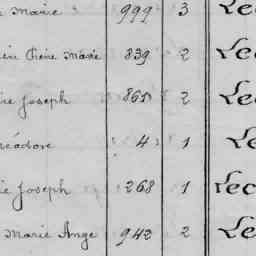 Marie 999 3 Le
Pierre Marie 839 2 Le
Joseph 865 2 Le
4 1 Le
Joseph 268 1 Lec
Marie Ange 942 2 Le